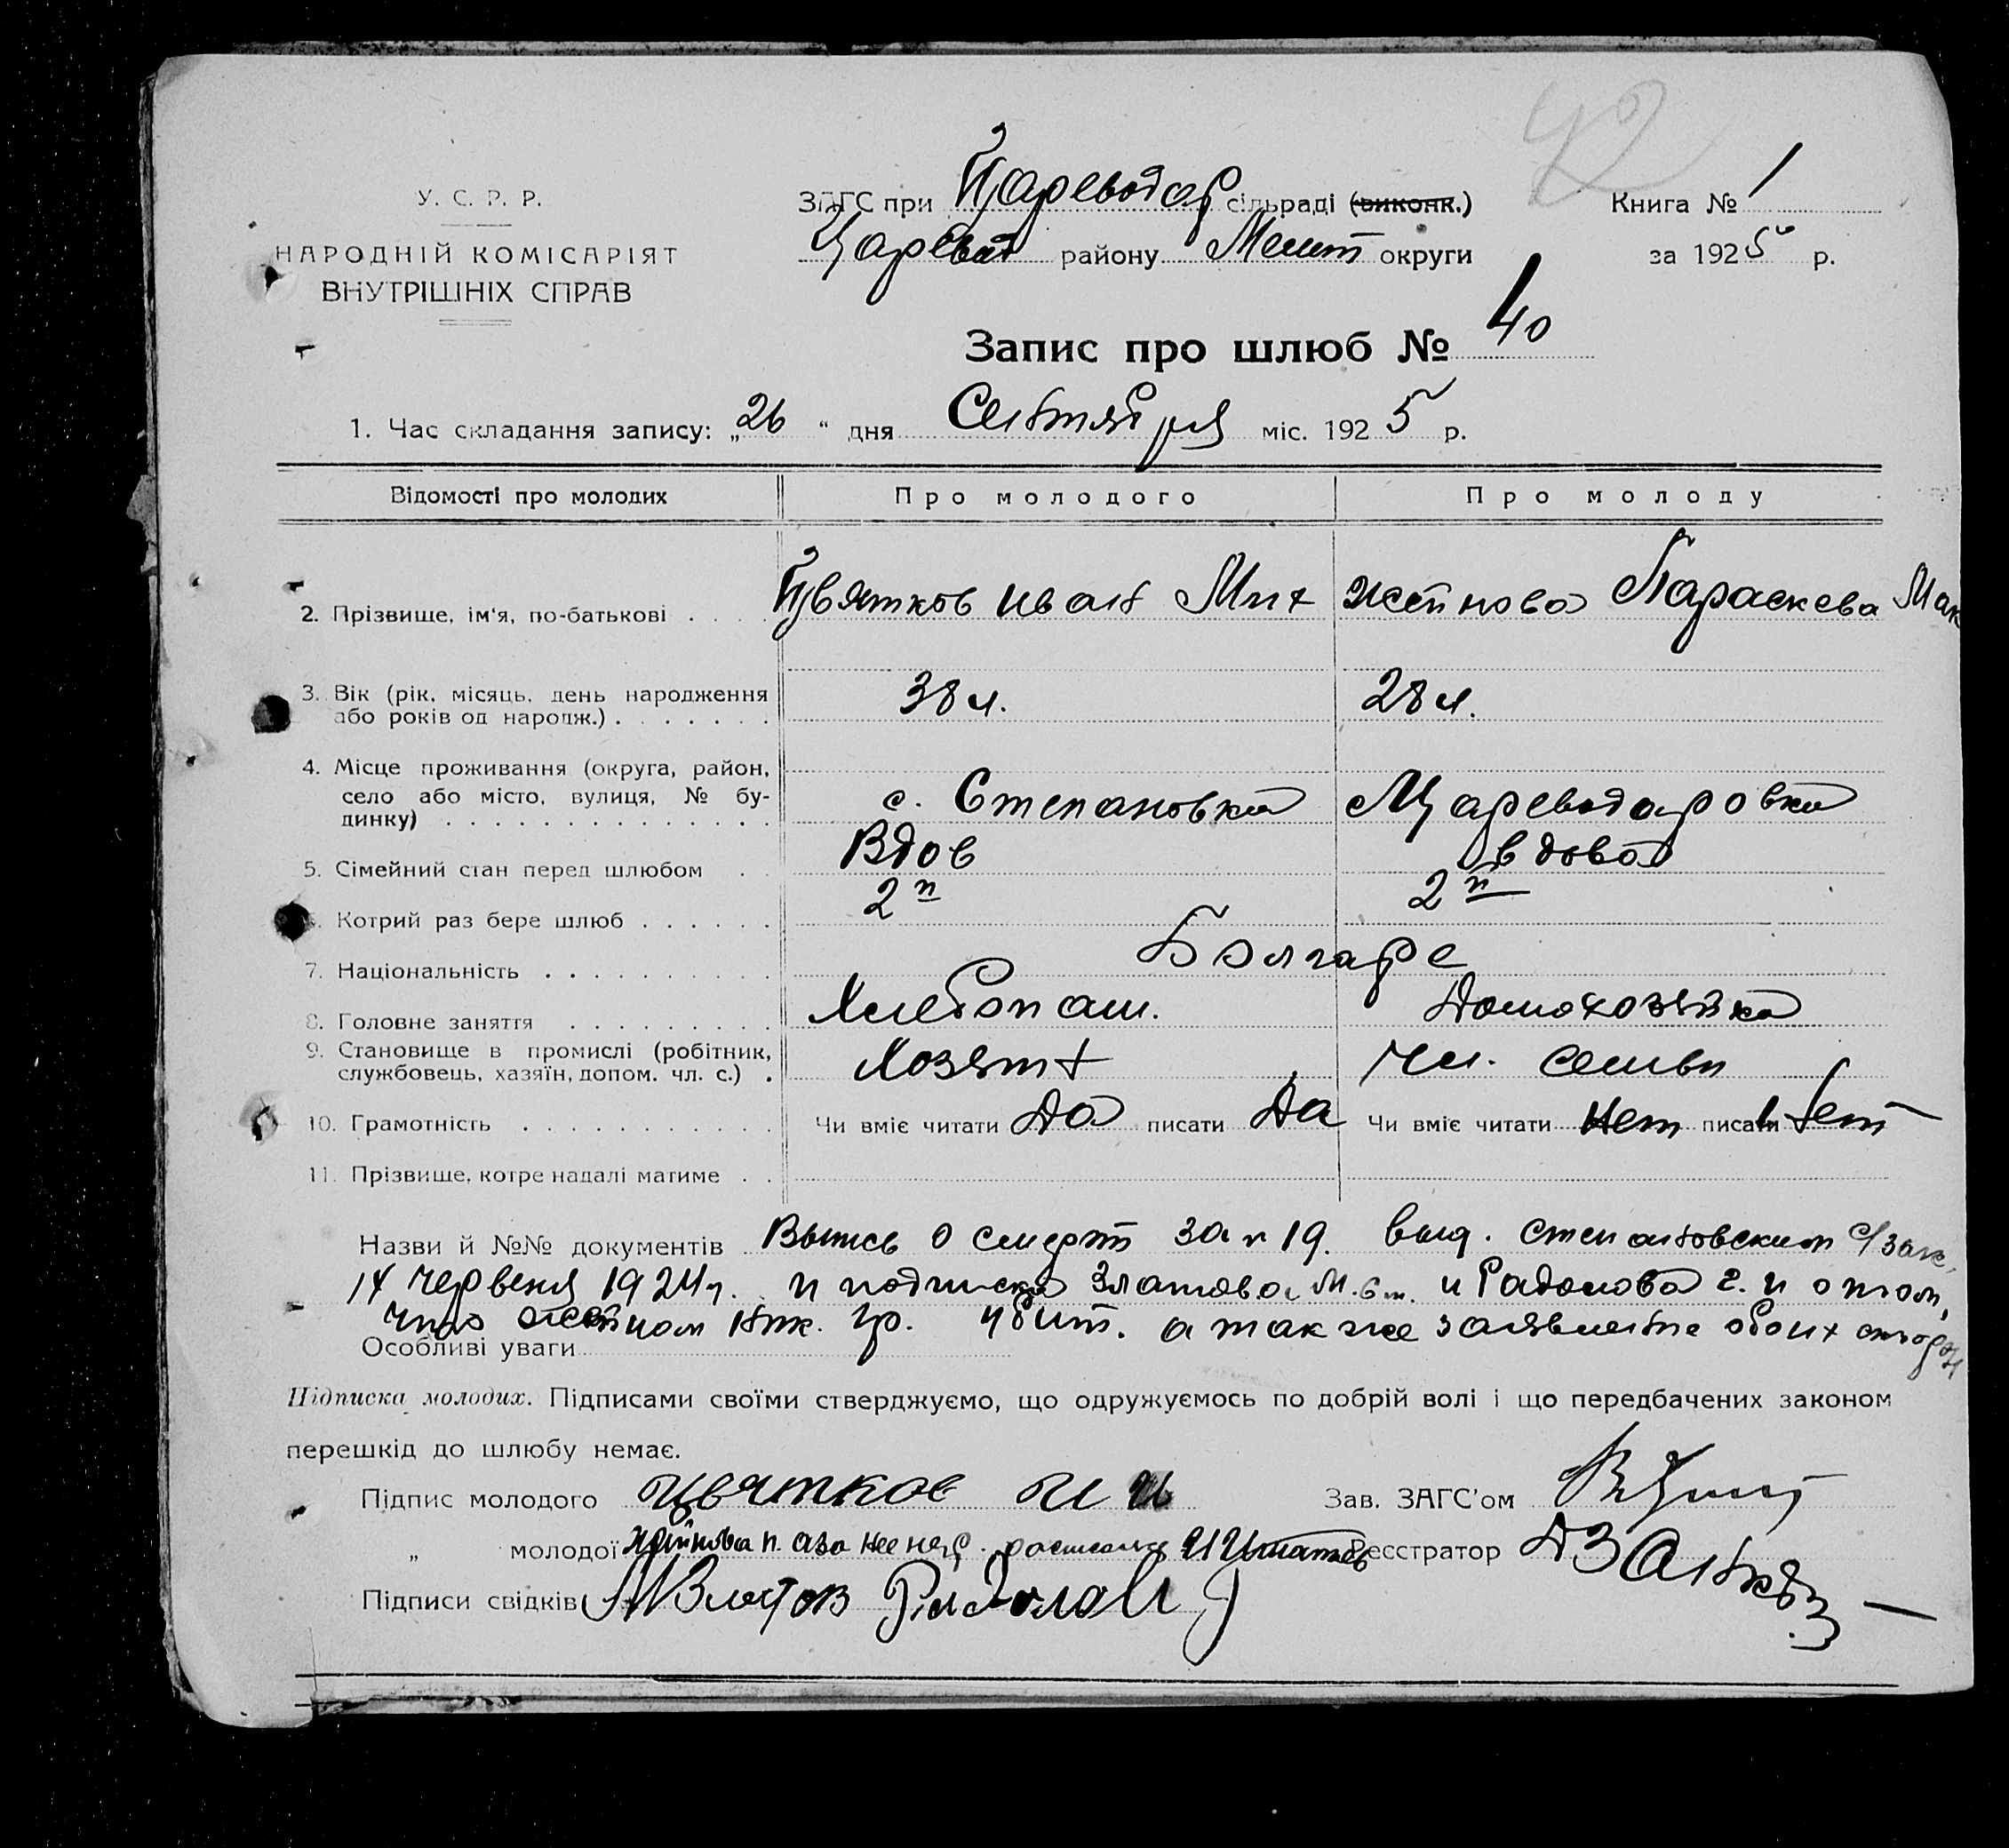 42
У. С. Р. Р.
НАРОДНІЙ КОМІСАРІЯТ
ВНУТРІШНІХ СПРАВ
ЗАГС при Цареводар сільраді (виконк.)
Царевод району Мелит округи
Книга № 1
за 1925 р.
Запис про шлюб № 40
1. Час складання запису: „26“ дня Сентября міс. 1925 р.
Відомості про молодих Про молодого Про молоду
2. Прізвище, ім'я, по-батькові . . . . Цвятков Иван Мих Желнова Параскева Мак
3. Вік (рік, місяць, день народження
або років од народж.) . . . . . . . 38 л. 28 л.
4. Місце проживання (округа, район,
село або місто, вулиця, № бу-
динку) . . . . . . . . . . . . . . с. Степановка Цареводаровка
5. Сімейний стан перед шлюбом . . Вдов вдова
6. Котрий раз бере шлюб . . . . . . 2й 2й
7. Національність . . . . . . . . . . Болгаре
8. Головне заняття . . . . . . . . . Хлебопаш. Домохозяйка
9. Становище в промислі (робітник,
службовець, хазяїн, допом. чл. с.) . Хозяин Чл. семьи
10. Грамотність . . . . . . . . . . . Чи вміє читати Да писати Да Чи вміє читати Нет писати Нет
11. Прізвище, котре надалі матиме . .
Назви й №№ документів Выпись о смерт за н 19. выд. Степановским с/загс,
14 червеня 1924 г. и подписка Златова М. и Радолова Г. И о том,
что гр. убит. а также заявление обоих
Особливі уваги
Підписка молодих. Підписами своїми стверджуємо, що одружуємось по добрій волі і що передбачених законом
перешкід до шлюбу немає.
Підпис молодого Цвятков И
Зав. ЗАГС'ом
„ молодої п. а за неё расписался
Реєстратор
Підписи свідків М Златов Радолов